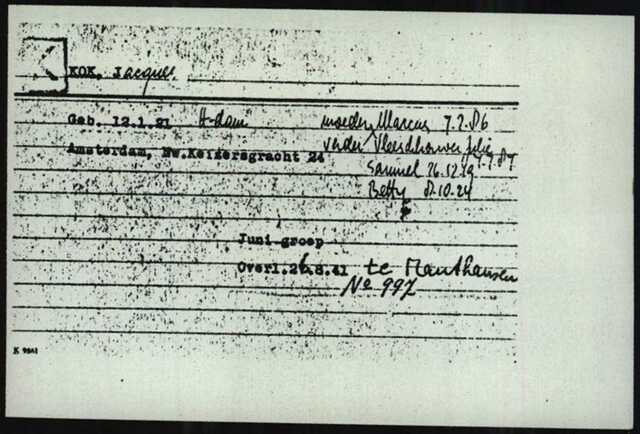 KOK, Jacques.
Geb. 12.1.21 A-dam
Amsterdam, Nw.Keizersgracht 24
moeder Marcus 7.2.86
vader Vleeschhouwer
Samuel 26.12.19
Betty 8.10.24
Juni groep
Overl.26.8.41 te Mauthausen
No 997
K 9541